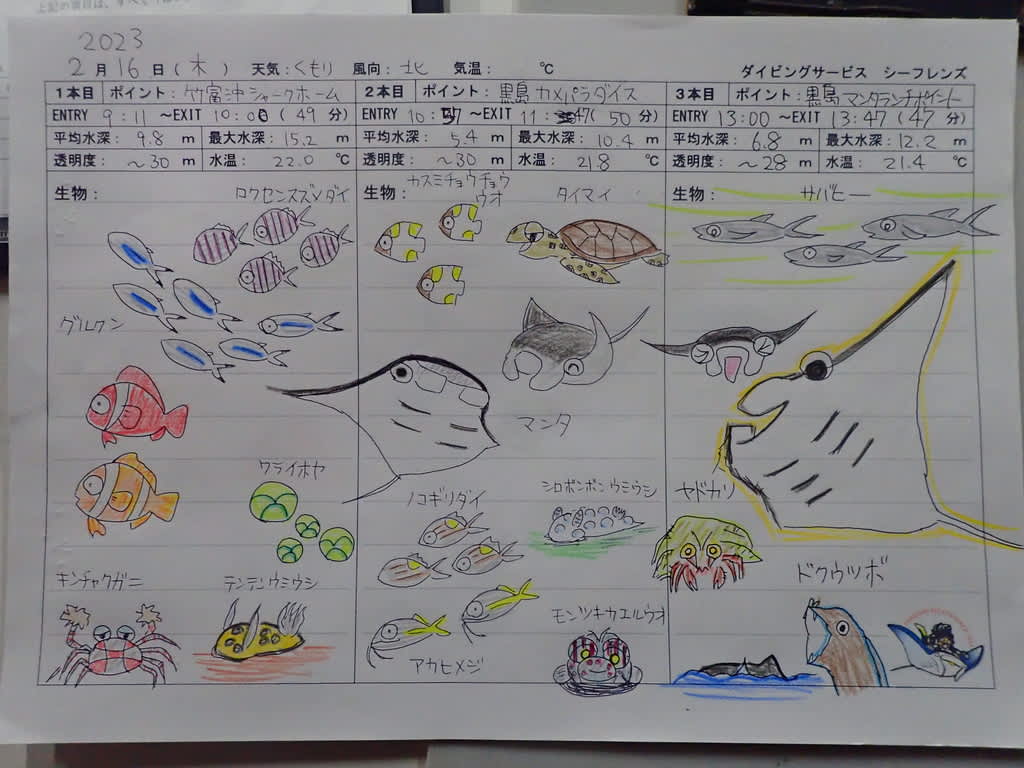 2023
2月16日(木) 天気:くもり 風向:北 気温: ℃
ダイビングサービス シーフレンズ
1本目 ポイント:竹富沖シャークホーム
ENTRY 9:11 ~EXIT 10:00 (49分)
平均水深:9.8 m 最大水深:15.2 m
透明度:~30 m 水温:22.0 ℃
生物:
ロクセンスズメダイ
グルクン
ワライボヤ
キンチャクガニ
テンテンウミウシ
2本目 ポイント:黒島カメパラダイス
ENTRY 10:57 ~EXIT 11:47 (50分)
平均水深:5.4 m 最大水深:10.4 m
透明度:~30 m 水温:21.8 ℃
生物:
カスミチョウチョウ
ウオ
タイマイ
マンタ
ノコギリダイ
シロボンボンウミウシ
アカヒメジ
モンツキカエルウオ
3本目 ポイント:黒島マンタランチポイント
ENTRY 13:00 ~EXIT 13:47 (47分)
平均水深:6.8 m 最大水深:12.2 m
透明度:~28 m 水温:21.4 ℃
生物:
サバヒー
ヤドカリ
ドクウツボ